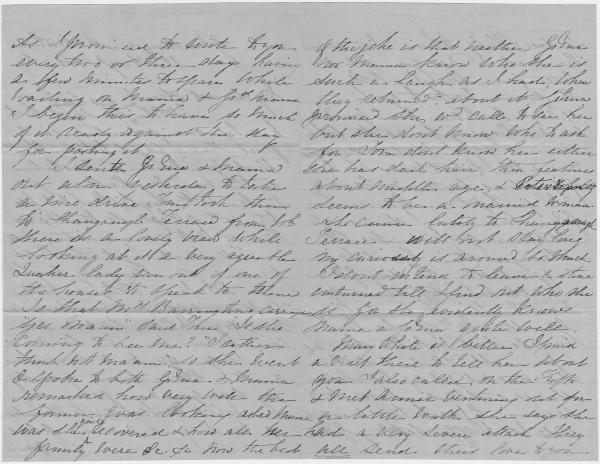 As I promised to write to you
every two or three days having
a few minutes to spare while
waiting on Mama & Grd Mama
I begin this to have so much
of it ready against the day
for posting it.
I sent Gd Ma & Mama
out alone yesterday to take
a nice drive Tom took them
to Terrace from wh
there is a lovely view while
looking at it a very agreeable
Quaker lady ran out of one of
the houses to speak to them
Is that Mrs Barrington's carriage
"Yes Maam" said Tom Is she
coming to see me? "I rather
think not Maam" So she went
& spoke to both Gd Ma & Mama
remarked how very well the
former was looking asked Mama
was she quite recovered & how all her
family were &c. &c Now the best
of the joke is that neither Gd Ma
nor Mama know who she is
such a laugh as I had when
they returned about it Gd Ma
promised she wd call to see her
but she dont know who to ask
for. Tom dont know her either
she has dark hair, thin features
about middle age, &
seems to be a married woman
She came lately to
Terrace & will not stay long
my curiosity is around so much
I dont intend to leave a stone
unturned till I find out who she
is for she evidently knows
Mama & Gd Ma quite well.
Mary White is better I paid
a visit there to tell her about
you I also called on the
& met Annie venturing out for
a little walk she says she
had a very severe attack they
all send their love to you